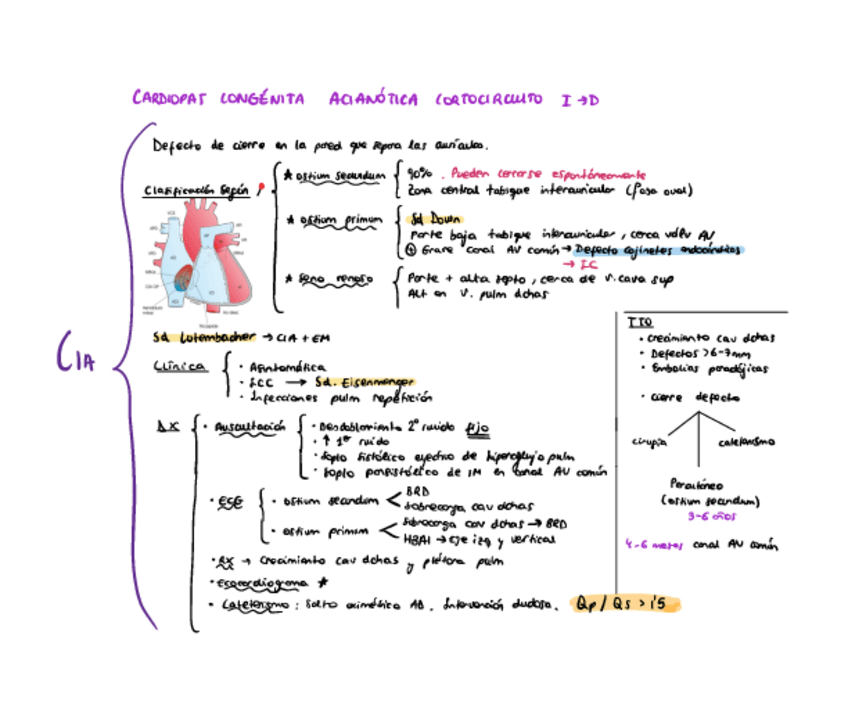 CARDIOPAT CONGÉNITA ACIANÓTICA CORTOCIRCUITO I→D
CIA
Defecto de cierre en la pared que separa las aurículas.
Clasificación según
* ostium secundum
90%. Pueden cerrarse espontáneamente
Zona central tabique interauricular (fosa oval)
* ostium primum
Sd Down
Parte baja tabique interauricular, cerca valv AV
⊕ Grave canal AV común → Defecto cojinetes endocárdicos
→ IC
* seno venoso
Parte + alta septo, cerca de v. cava sup
Alt en v. pulm dchas
Sd Lutembacher → CIA + EM
Clínica
· Asintomática
· ICC → Sd. Eisenmenger
· Infecciones pulm repetición
DX
· Auscultación
· Desdoblamiento 2º ruido fijo
· ↑ 1er ruido
· Soplo sistólico eyectivo de hiperaflujo pulm
· Soplo pansistólico de IM en canal AV común
· ECG
· ostium secundum
BRD
Sobrecarga cav dchas
· ostium primum
Sobrecarga cav dchas → BRD
HBAI → eje izq y vertical
· RX → Crecimiento cav dchas y plétora pulm
· Ecocardiograma *
· Cateterismo: Salto oximétrico AD. Intervención dudosa. Qp/Qs > 1'5
TTO
· Crecimiento cav dchas
· Defectos >6-7mm
· Embolias paradójicas
· Cierre defecto
cirugía
cateterismo
Percutáneo
(ostium secundum)
3-6 años
4-6 meses canal AV común